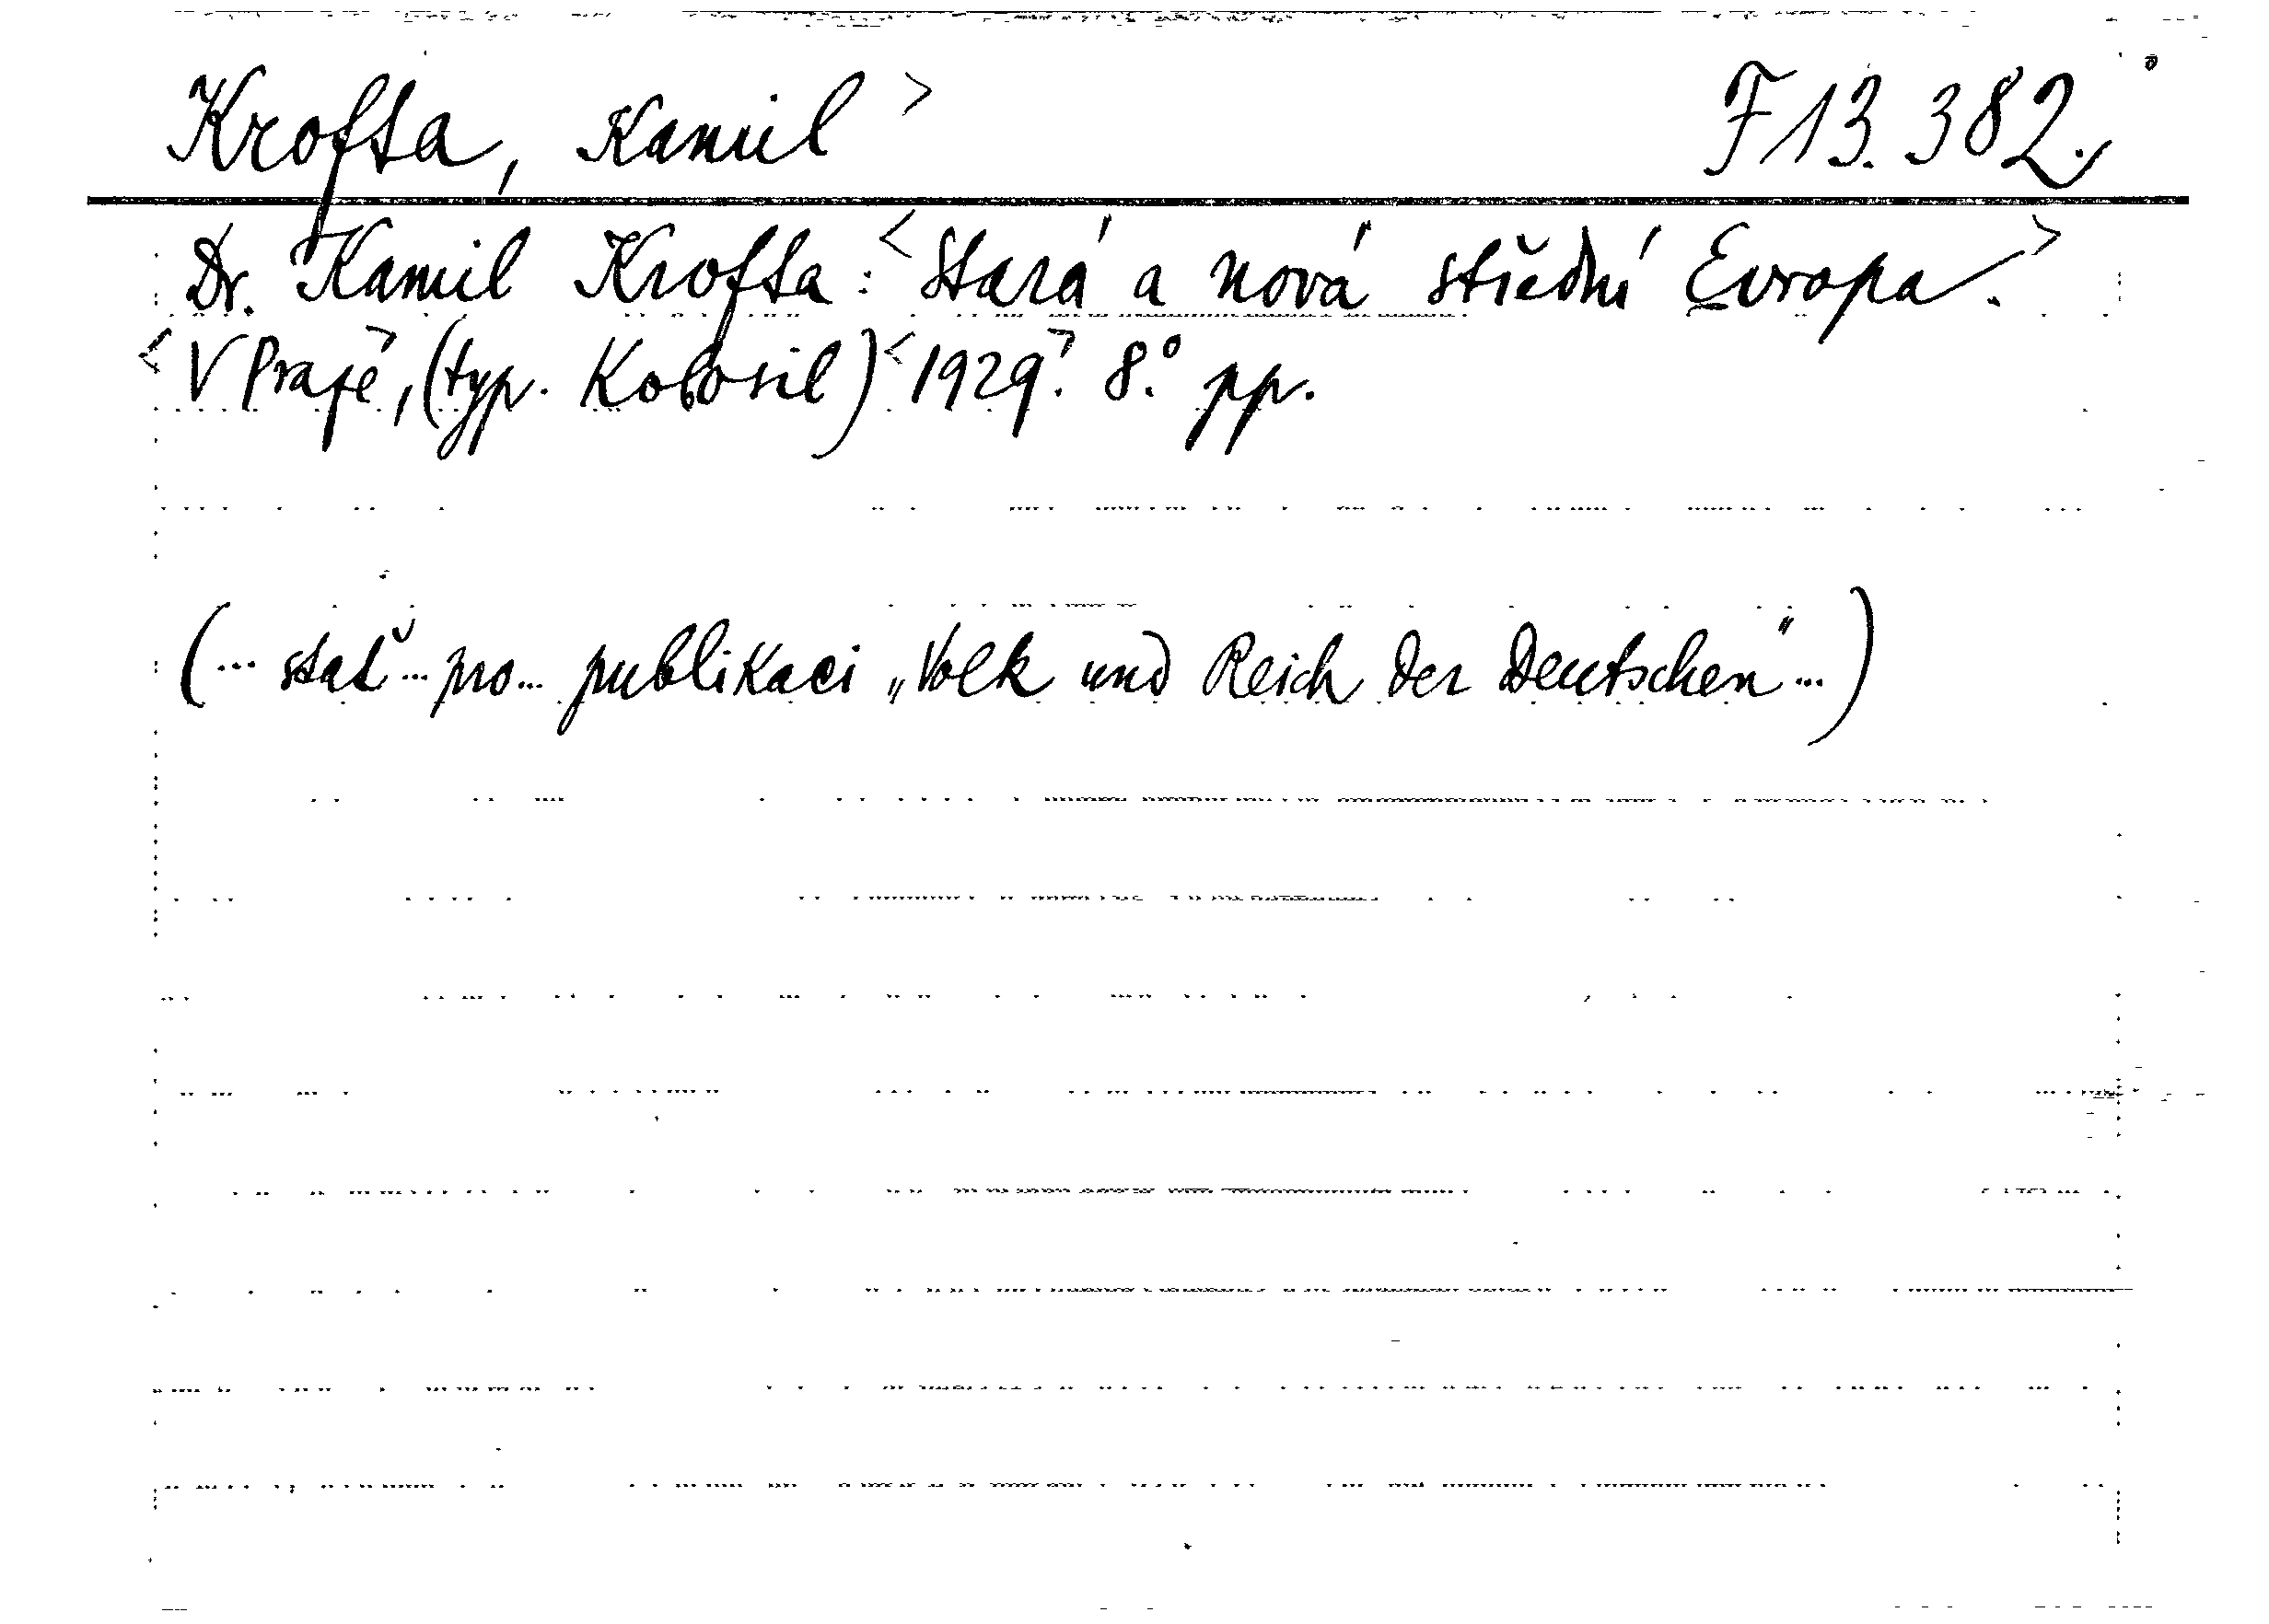 Krofta, Kamil > F 13.382.
Dr. Kamil Krofta: <Stará a nová střední Evropa.>
<V Praze>, (typ. Kolosil) <1929>. 8.° pp.
(... stať ... pro ... publikaci „Volk und Reich der Deutschen" ...)